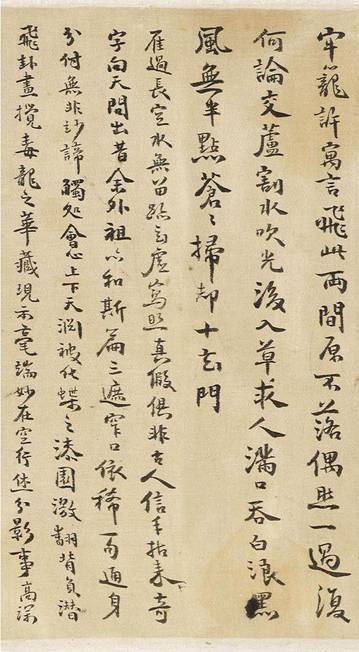 牢籠許寓言飛此両間原不落偶然一過復
何論交蘆割水吹光後入草求人滿口吞白浪黑
風無半點蒼〻掃却十玄門
雁過長空水無留跡玄虛寫照真假俱非古人信手拈來奇
字向天問出昔余外祖以和斯篇三遮窄口依稀一面通身
分付無非妙諦觸処會心上下天淵被化蝶之漆園激翻背負潛
飛卦畫攪毒龍之華藏現示毫端妙在空行迹分影事高深